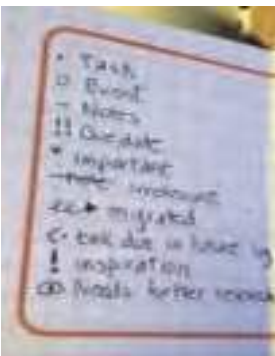 • Task
o Event
- Notes
!! Due date
* important
irrelevant
migrated
<• task due in future
! inspiration
Needs further research